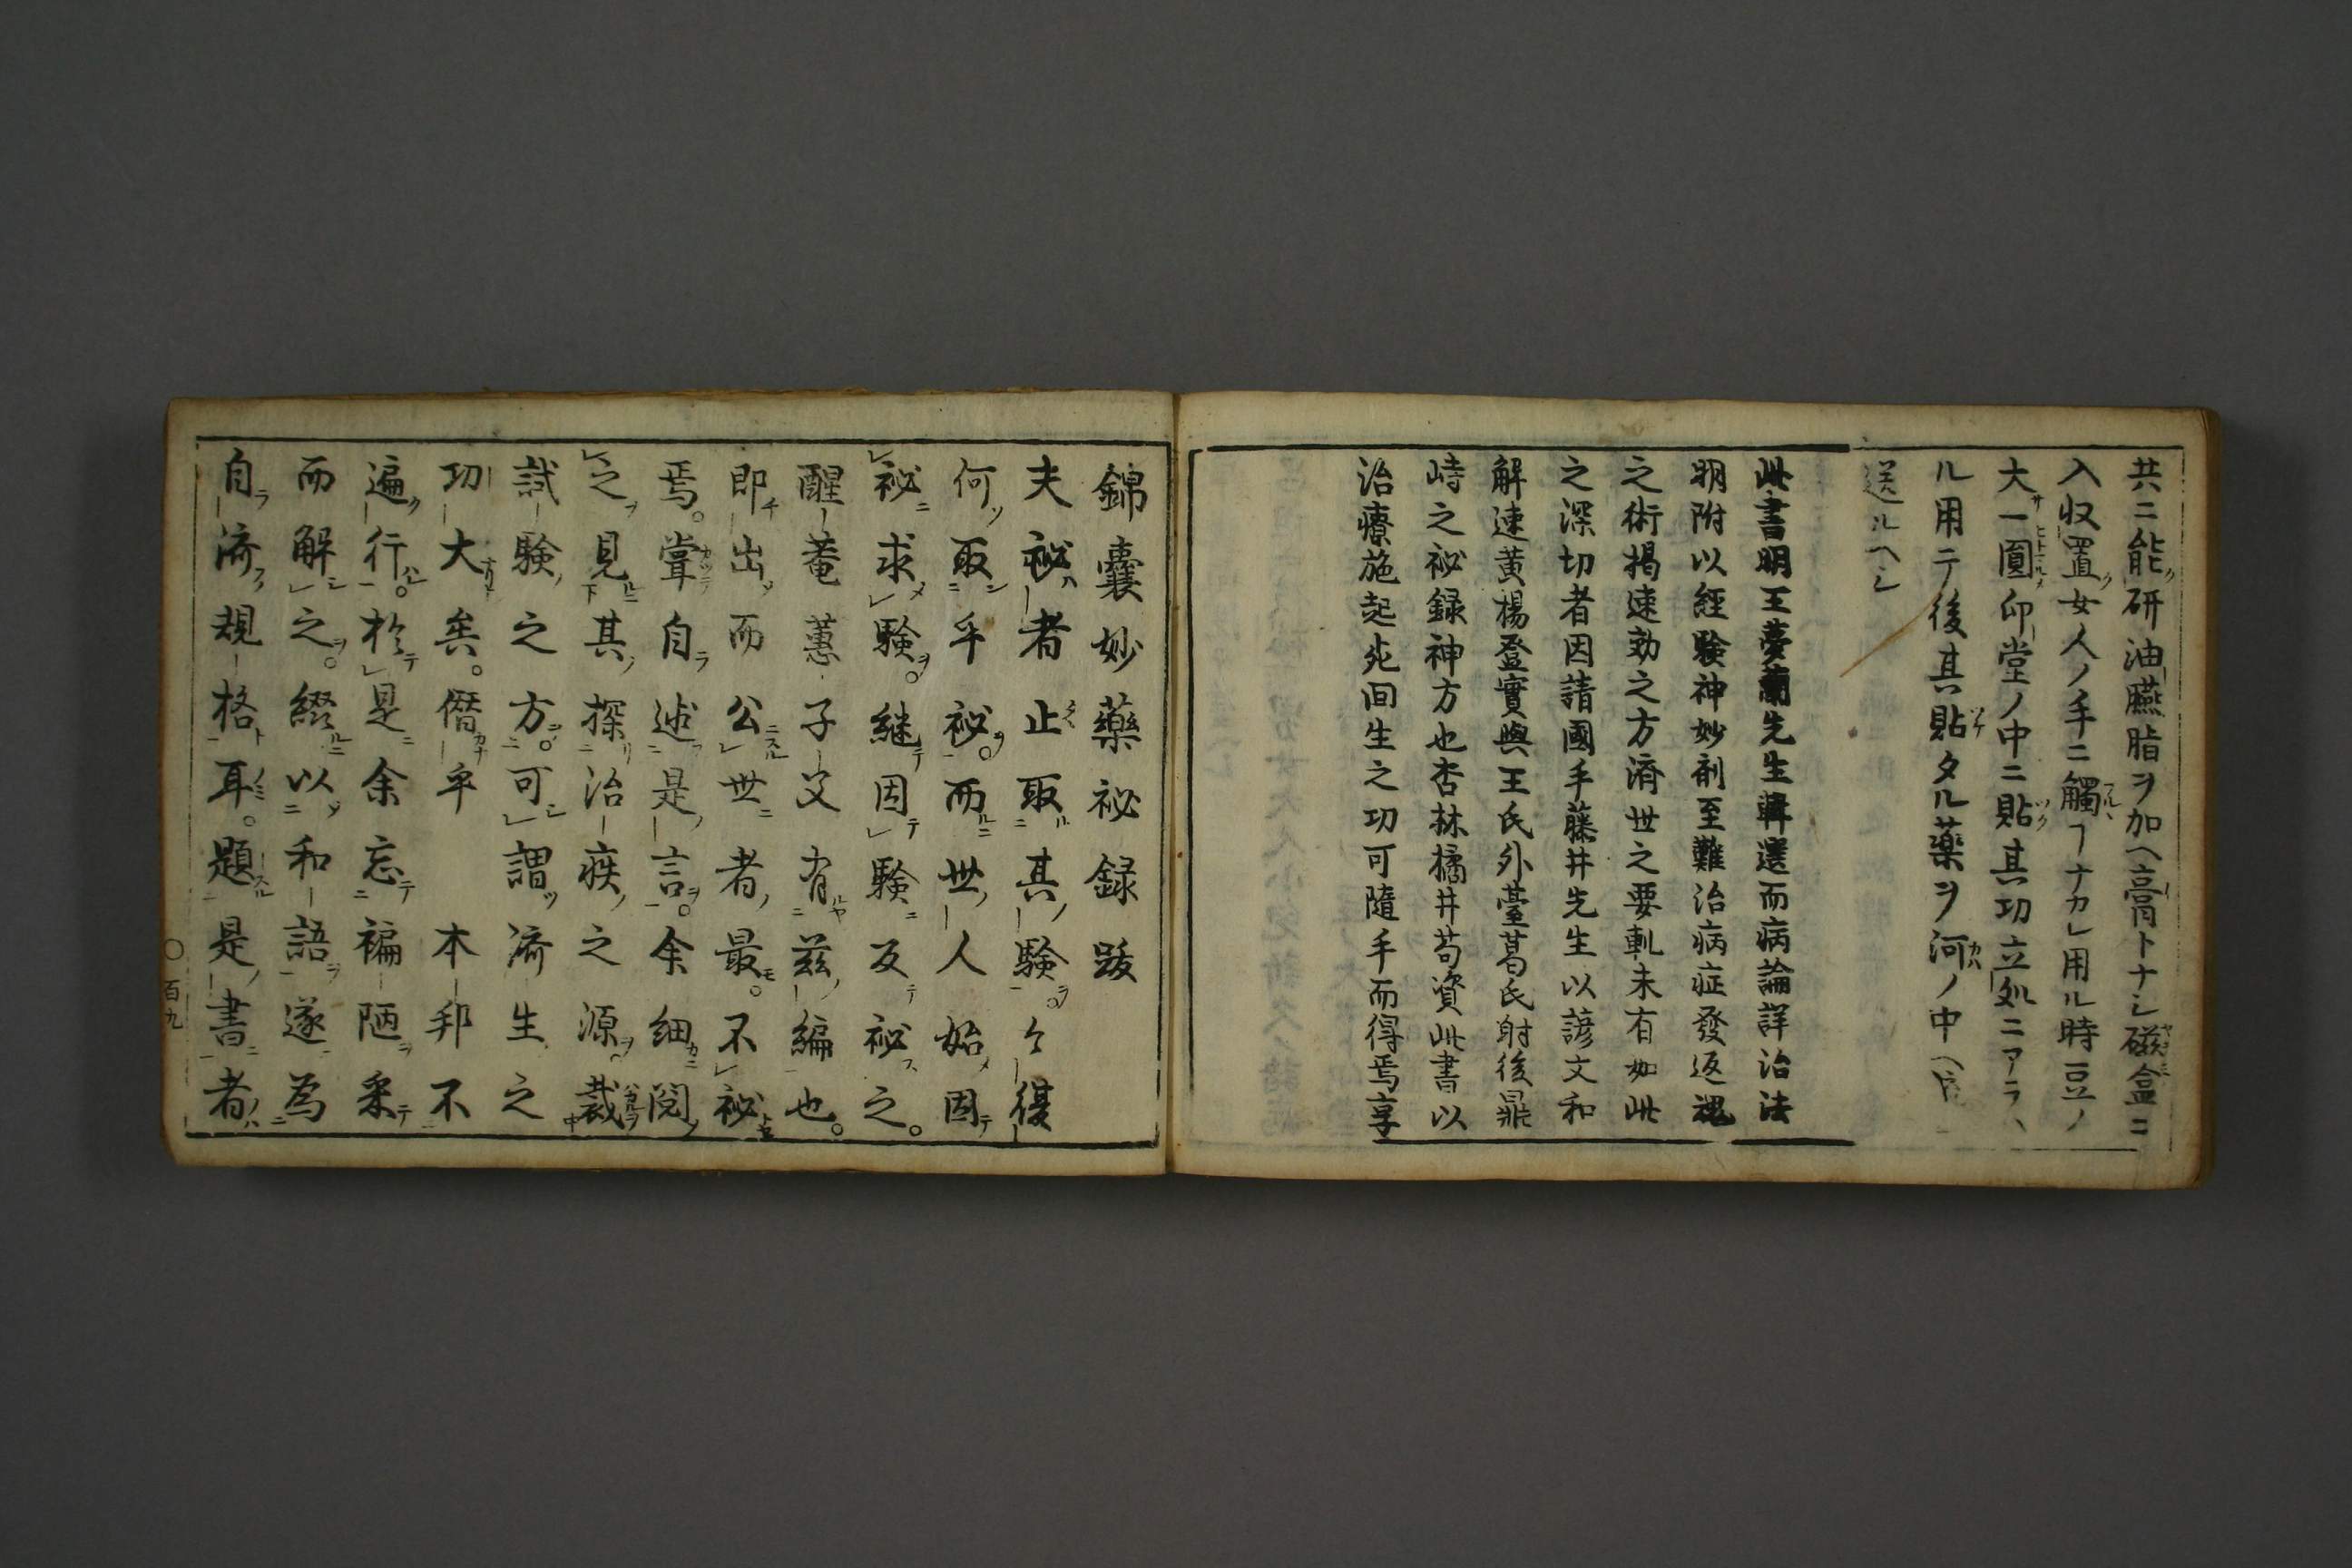 共ニ能研油臙脂ヲ加ヘ膏トナシ磁盒ニ
入収置女人ノ手ニ觸ヿナカレ用ル時豆ノ
大一圓印堂ノ中ニ貼其功立処ニアラハ
ル用テ後其貼タル薬ヲ河ノ中ヘ
送ルヘシ
此書明王夢蘭先生輯選而病論詳治法
明附以経験神妙剤至難治病症發返魂
之術掲速効之方濟世之要軏未有如此
之深切者因請國手藤井先生以諺文和
解速黄楊登實與王氏外臺葛氏射後鼎
峙之袐録神方也杏林橘井苟資此書以
治療施起死回生之功可隨手而得焉享
錦嚢妙藥袐録跋
夫袐者止取其験々復
何取乎袐而世人始因
袐求験継因験及袐之
醒菴蕙子父有茲編也
即出而公世者最不袐
焉甞自述是言余細閲
之見其探治疾之源裁
試験之方可謂濟生之
功大矣僭乎 本邦不
遍行於是余忘褊陋采
而解之綴以和語遂為
自濟規格耳題是書者
百九